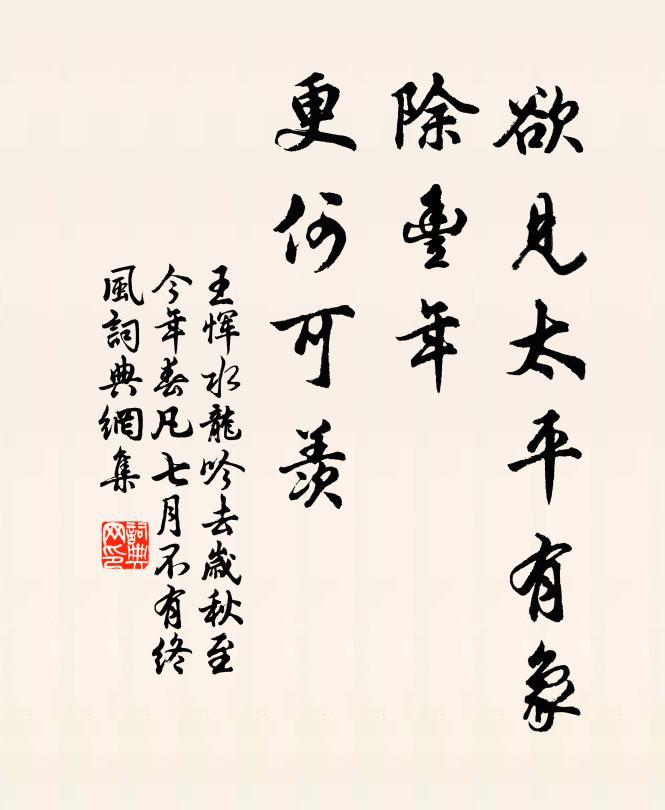 欲見太平有象
除豐年
更何可羨
王惲水龍吟去歲秋至
今年春凡七月不有終
風詞典網集
詞典
网印